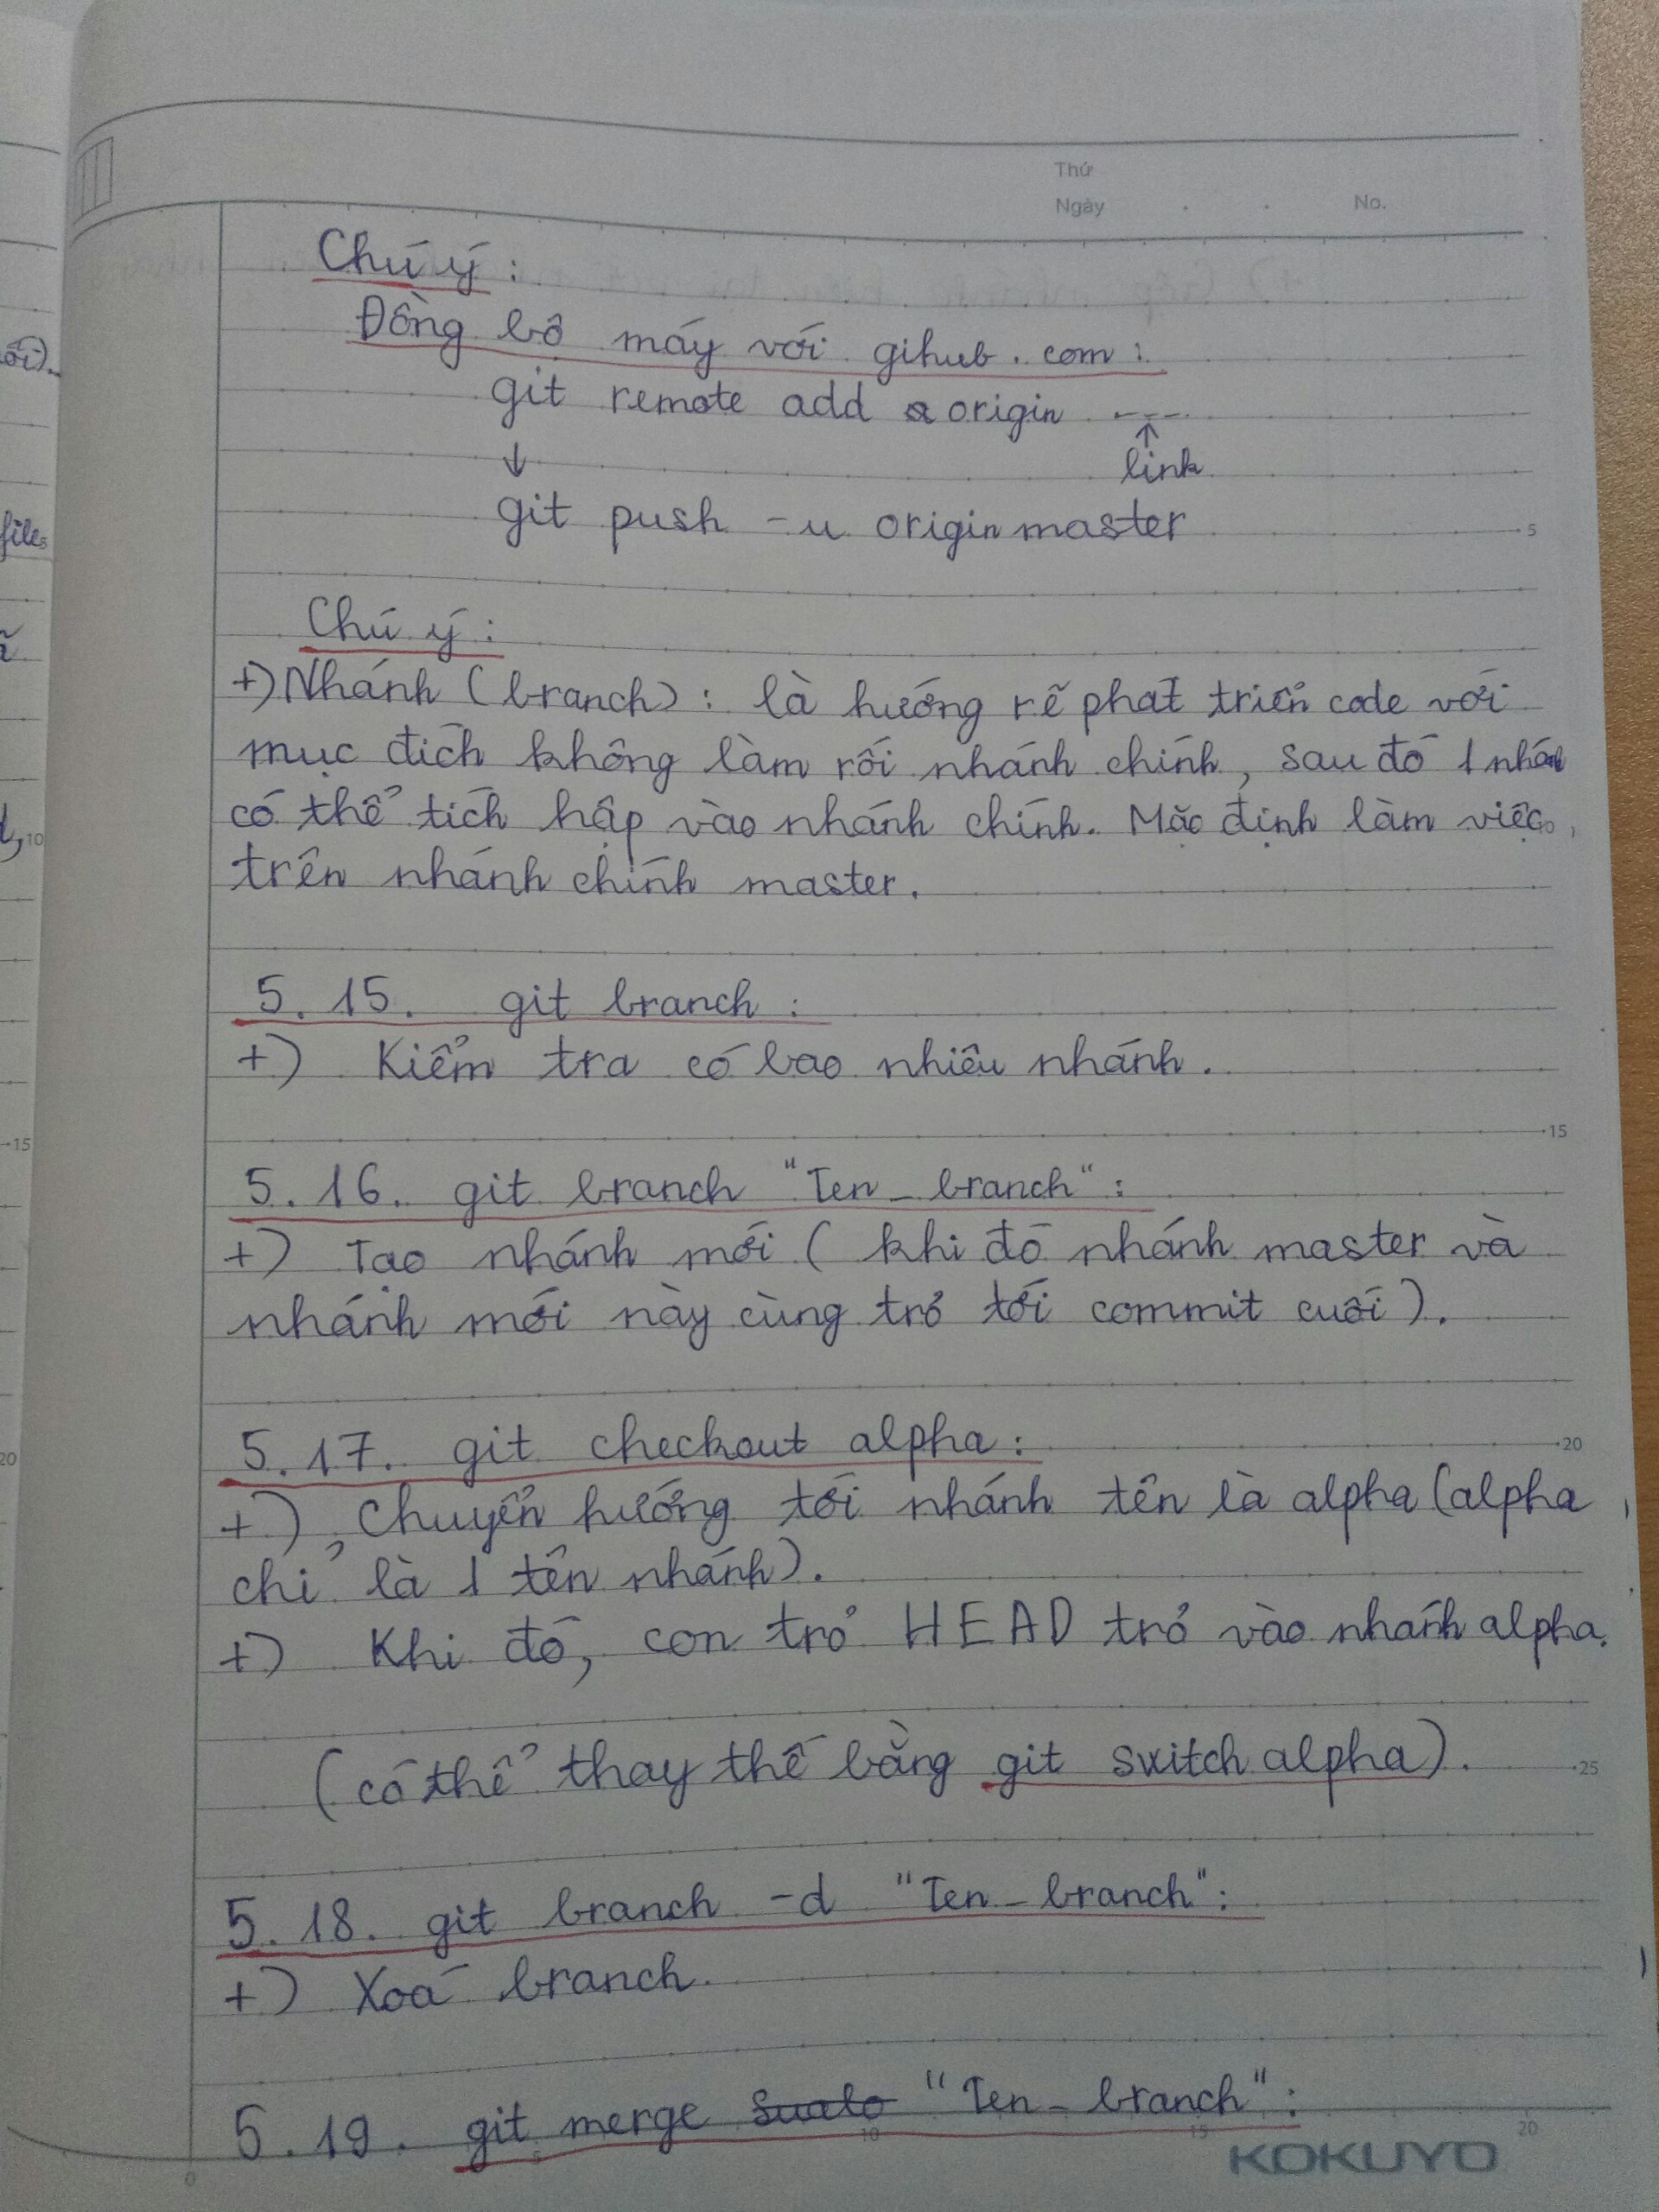 Thứ
Ngày . . No.
Chú ý :
Đồng bộ máy với gihub.com :
git remote add origin ----
↓ ↑
link
git push -u origin master
5
Chú ý :
+) Nhánh (branch) : là hướng rẽ phát triển code với
mục đích không làm rối nhánh chính, sau đó 1 nhánh
có thể tích hợp vào nhánh chính. Mặc định làm việc
trên nhánh chính master.
5.15. git branch :
+) Kiểm tra có bao nhiêu nhánh.
15
5.16. git branch "Ten_branch" :
+) Tạo nhánh mới ( khi đó nhánh master và
nhánh mới này cùng trỏ tới commit cuối ).
5.17. git checkout alpha :
20
+) Chuyển hướng tới nhánh tên là alpha (alpha
chỉ là 1 tên nhánh).
+) Khi đó, con trỏ HEAD trỏ vào nhánh alpha.
(có thể thay thế bằng git switch alpha).
25
5.18. git branch -d "Ten_branch" :
+) Xoá branch.
5.19. git merge "Ten_branch" :
0 5 10 15 20
KOKUYO